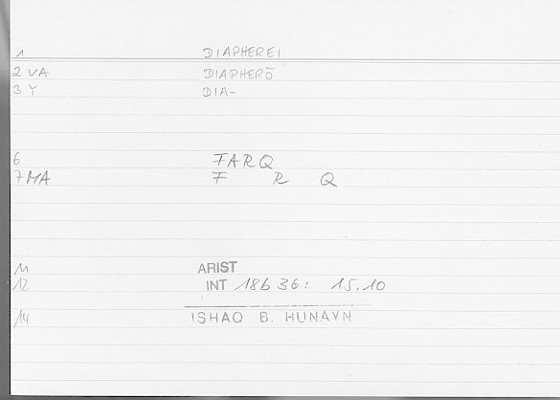 1 DIAPHEREI
2 VA DIAPHERŌ
3 Y DIA-
6 FARQ
7 MA F R Q
11 ARIST
12 INT 18b 36: 15.10
14 ISHAQ B. HUNAYN